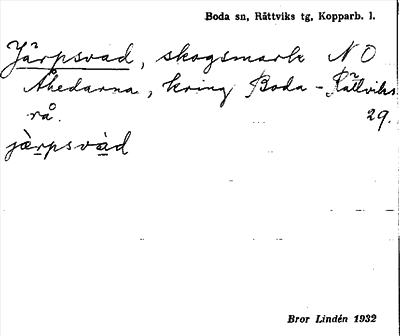 Boda sn, Rättviks tg, Kopparb. l.
Järpsvad, skogsmark N O
Åhedarna, kring Boda - Rättviks
rå. 29.
jàrpsvàd
Bror Lindén 1932